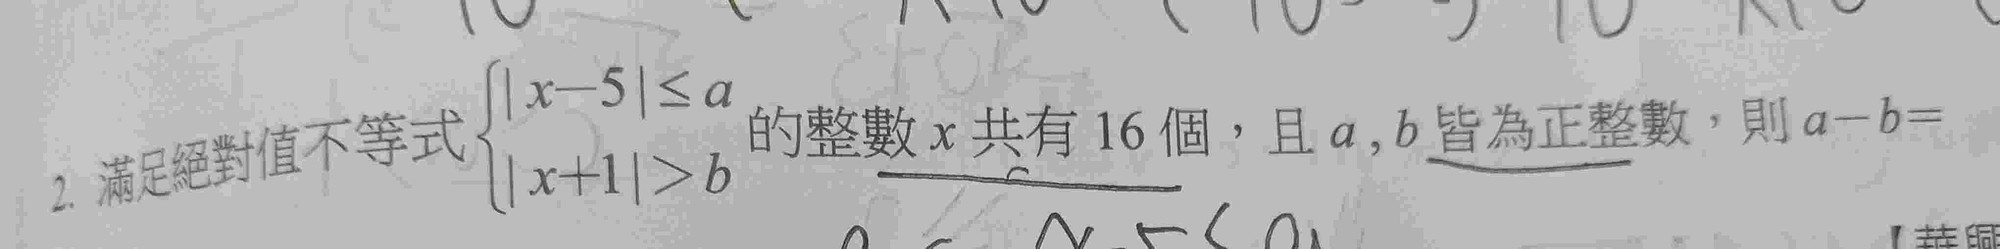 2. 滿足絕對值不等式{|x−5|≤a |x+1|>b 的整數 x 共有 16 個，且 a , b 皆為正整數，則 a−b=